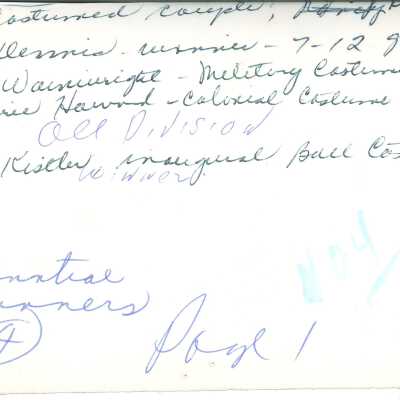 costumed couple,
Dennis. winner - 7-12 g
Wainwright - Military Costume
rie Howard - Colonial Costume
All Division
Kistler inaugural Ball Cos
winner
nnaers
4
Page 1